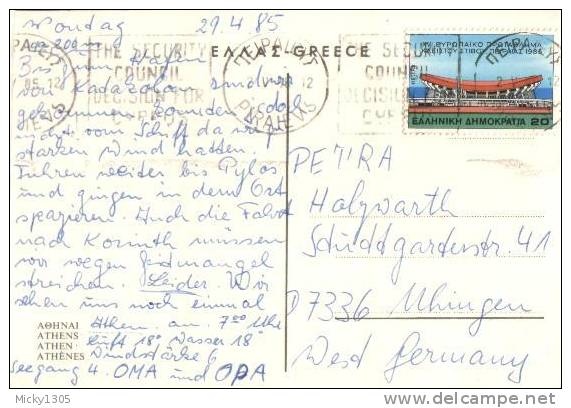 Montag 29.4.85
200
Bis zum Hafen
von Kadakolon sind wir
gekommen, konnten jedoch
nicht vom Schiff da wir
starken Wind hatten.
Fuhren weiter bis Pylos
und gingen in dem Ort
spazieren. Auch die Fahrt
nach Korinth müssen
wir wegen Zeitmangel
streichen. Leider. Wir
sehen uns noch einmal
Athen. an. 7⁰⁰ Uhr
Luft 18° Wasser 18°
Windstärke 6
Seegang 4. OMA und OPA
ΑΘΗΝΑΙ
ATHENS
ATHEN
ATHÈNES
ΕΛΛΑΣ-GREECE
THE SECURITY
COUNCIL
DECISION FOR
CYPRUS
PIRAEVS
ΕΛΛΗΝΙΚΗ ΔΗΜΟΚΡΑΤΙΑ 20
PETRA
Holzwarth
Stuttgarterstr. 41
D 7336 Uhingen
West Germany
Micky1305
delcampe.net